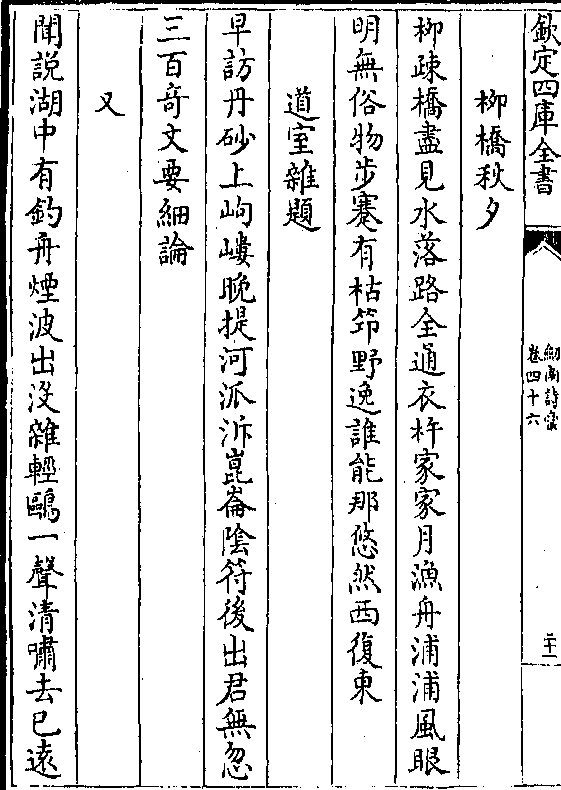 欽定四庫全書
劍南詩藁
卷四十六
二十一
柳橋秋夕
柳疎橋盡見水落路全通衣杵家家月漁舟浦浦風眼
明無俗物步蹇有枯笻野逸誰能那悠然西復東
道室雜題
早訪丹砂上岣嶁晚提河派泝崑崙陰符後出君無忽
三百奇文要細論
又
聞說湖中有釣舟煙波出沒雜輕鷗一聲清嘯去已遠